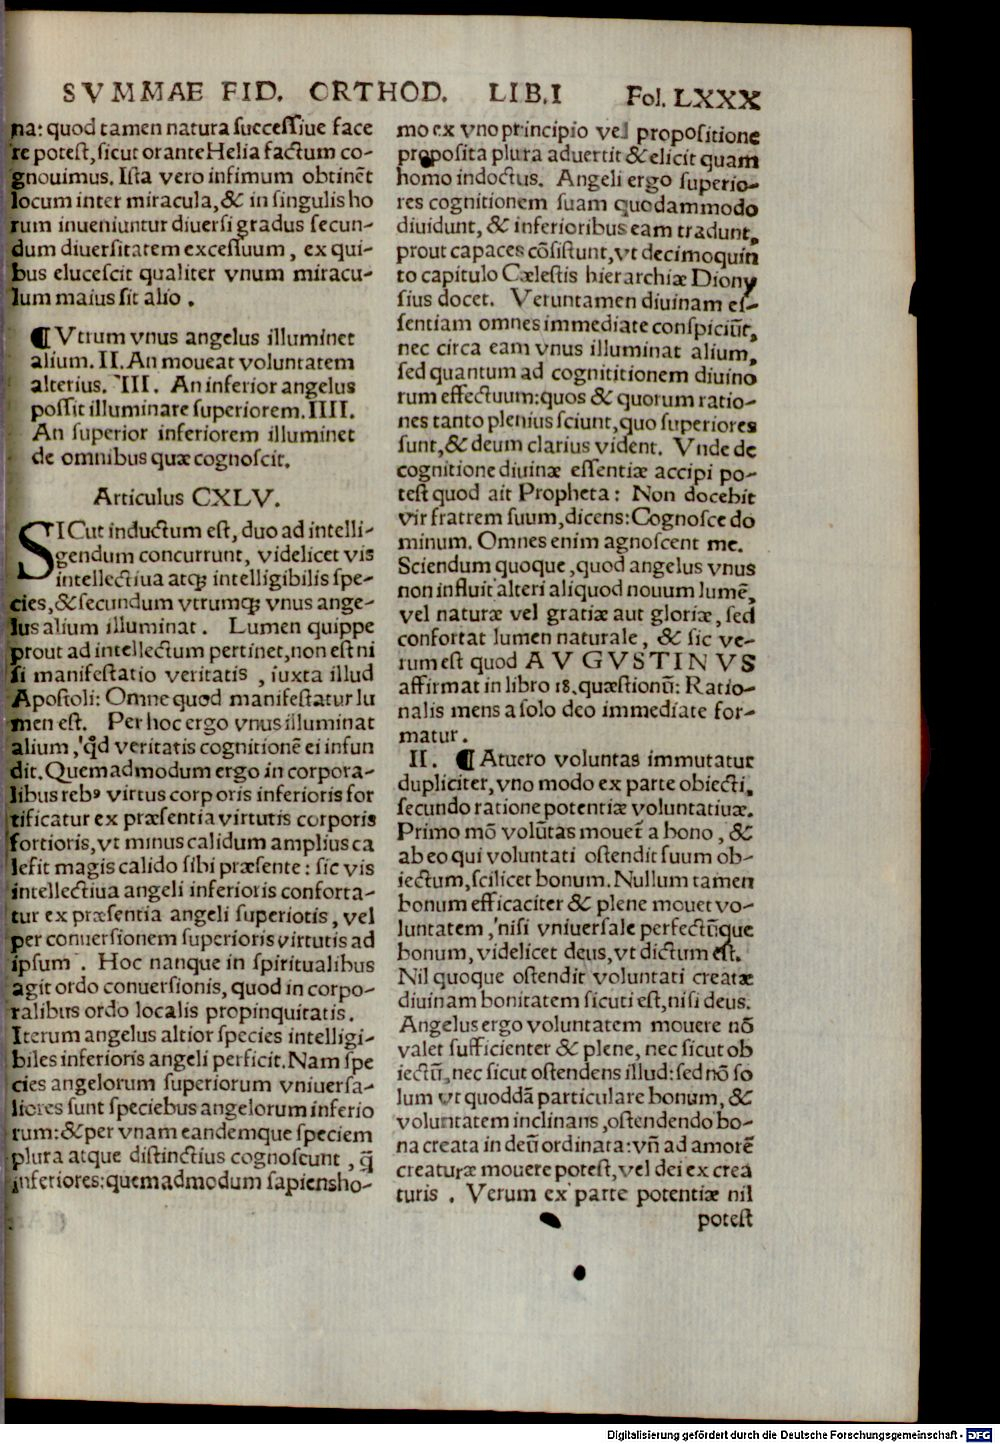 SVMMAE FID. ORTHOD. LIB.I Fol. LXXX
na: quod tamen natura successiue face
re potest, sicut orante Helia factum co-
gnouimus. Ista vero infimum obtinēt
locum inter miracula, & in singulis ho
rum inueniuntur diuersi gradus secun-
dum diuersitatem excessuum, ex qui-
bus elucescit qualiter vnum miracu-
lum maius sit alio.
¶ Vtrum vnus angelus illuminet
alium. II. An moueat voluntatem
alterius. III. An inferior angelus
possit illuminare superiorem. IIII.
An superior inferiorem illuminet
de omnibus quæ cognoscit.
Articulus CXLV.
SICut inductum est, duo ad intelli-
gendum concurrunt, videlicet vis
intellectiua atqꝫ intelligibilis spe-
cies, & secundum vtrumqꝫ vnus ange-
lus alium illuminat. Lumen quippe
prout ad intellectum pertinet, non est ni
si manifestatio veritatis, iuxta illud
Apostoli: Omne quod manifestatur lu
men est. Per hoc ergo vnus illuminat
alium, ꝙd veritatis cognitionē ei infun
dit. Quemadmodum ergo in corpora-
libus rebꝰ virtus corporis inferioris for
tificatur ex præsentia virtutis corporis
fortioris, vt minus calidum amplius ca
lefit magis calido sibi præsente: sic vis
intellectiua angeli inferioris conforta-
tur ex præsentia angeli superiotis, vel
per conuersionem superioris virtutis ad
ipsum. Hoc nanque in spiritualibus
agit ordo conuersionis, quod in corpo-
ralibus ordo localis propinquitatis.
Iterum angelus altior species intelligi-
biles inferioris angeli perficit. Nam spe
cies angelorum superiorum vniuersa-
liores sunt speciebus angelorum inferio
rum: & per vnam eandemque speciem
plura atque distinctius cognoscunt, q̄
inferiores: quemadmodum sapiens ho-
mo ex vno principio vel propositione
proposita plura aduertit & elicit quam
homo indoctus. Angeli ergo superio-
res cognitionem suam quodammodo
diuidunt, & inferioribus eam tradunt,
prout capaces cōsistunt, vt decimoquin
to capitulo Cælestis hierarchiæ Diony
sius docet. Veruntamen diuinam es-
sentiam omnes immediate conspiciūt,
nec circa eam vnus illuminat alium,
sed quantum ad cognititionem diuino
rum effectuum: quos & quorum ratio-
nes tanto plenius sciunt, quo superiores
sunt, & deum clarius vident. Vnde de
cognitione diuinæ essentiæ accipi po-
test quod ait Propheta: Non docebit
vir fratrem suum, dicens: Cognosce do
minum. Omnes enim agnoscent me.
Sciendum quoque, quod angelus vnus
non influit alteri aliquod nouum lumē,
vel naturæ vel gratiæ aut gloriæ, sed
confortat lumen naturale, & sic ve-
rum est quod AVGVSTINVS
affirmat in libro 18. quæstionū: Ratio-
nalis mens a solo deo immediate for-
matur.
II. ¶ At uero voluntas immutatur
dupliciter, vno modo ex parte obiecti,
secundo ratione potentiæ voluntatiuæ.
Primo mō volūtas mouet̄ a bono, &
ab eo qui voluntati ostendit suum ob-
iectum, scilicet bonum. Nullum tamen
bonum efficaciter & plene mouet vo-
luntatem, nisi vniuersale perfectūque
bonum, videlicet deus, vt dictum est.
Nil quoque ostendit voluntati creatæ
diuinam bonitatem sicuti est, nisi deus.
Angelus ergo voluntatem mouere nō
valet sufficienter & plene, nec sicut ob
iectū, nec sicut ostendens illud: sed nō so
lum vt quoddā particulare bonum, &
voluntatem inclinans, ostendendo bo-
na creata in deū ordinata: vn̄ ad amorē
creaturæ mouere potest, vel dei ex crea
turis. Verum ex parte potentiæ nil
potest
Digitalisierung gefördert durch die Deutsche Forschungsgemeinschaft - DFG